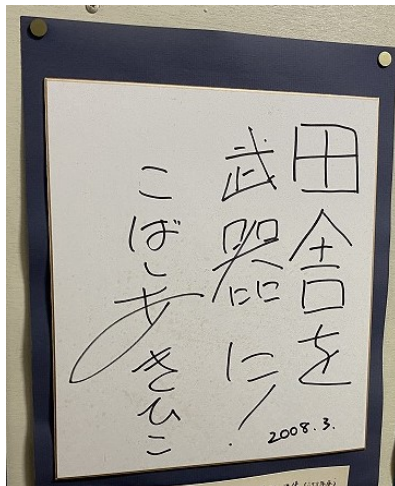 田舎を
武器に!
こばしあきひこ
2008.3.